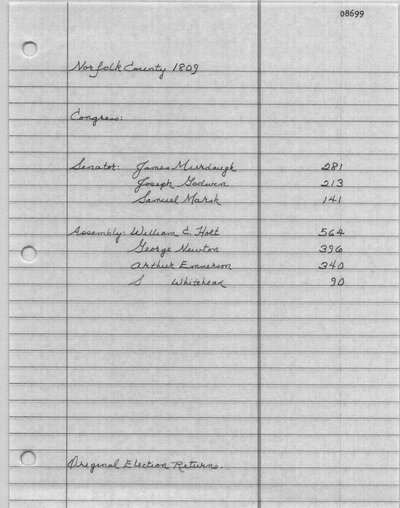 08699
Norfolk County 1809
Congress:
Senator: James Murdaugh 281
Joseph Godwin 213
Samuel Marsh 141
Assembly: William C. Holt 564
George Newton 396
Arthur Emmerson 340
S Whitehead 90
Original Election Returns.